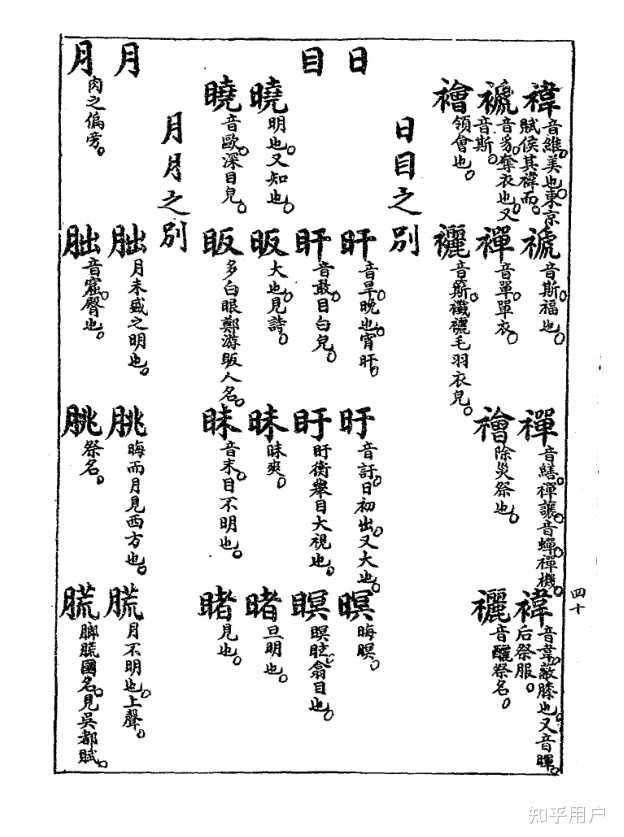 褘 音維美也東京賦侯其褘而 禠 音斯福也 禪 音繕禪讓音蟬禪機 褘 音韋蔽膝也又音暉后祭服
褫 音豸奪衣也又音斯 襌 音單單衣 禬 除災祭也 音釃祭名
襘 領會也 襹 襳襹毛羽衣皃
日目之別
日 旰 音旱晚也宵旰 旴 音訏日初出又大也 暝 晦暝
目 盰 音敢目白皃 盱 盱衡舉目大視也 瞑 瞑眩翕目也
曉 明也又知也 昄 大也見詩 昧 昧爽 暏 旦明也
䁱 音歐深目皃 眅 多白眼鄭游眅人名 眛 音末目不明也 睹 見也
月⺼之別
月 朏 月未盛之明也 朓 晦而月見西方也 㬻 月不明也上聲
⺼ 肉之偏旁 胐 音窟臀也 脁 祭名 國名見吳都賦
四十
知乎用户